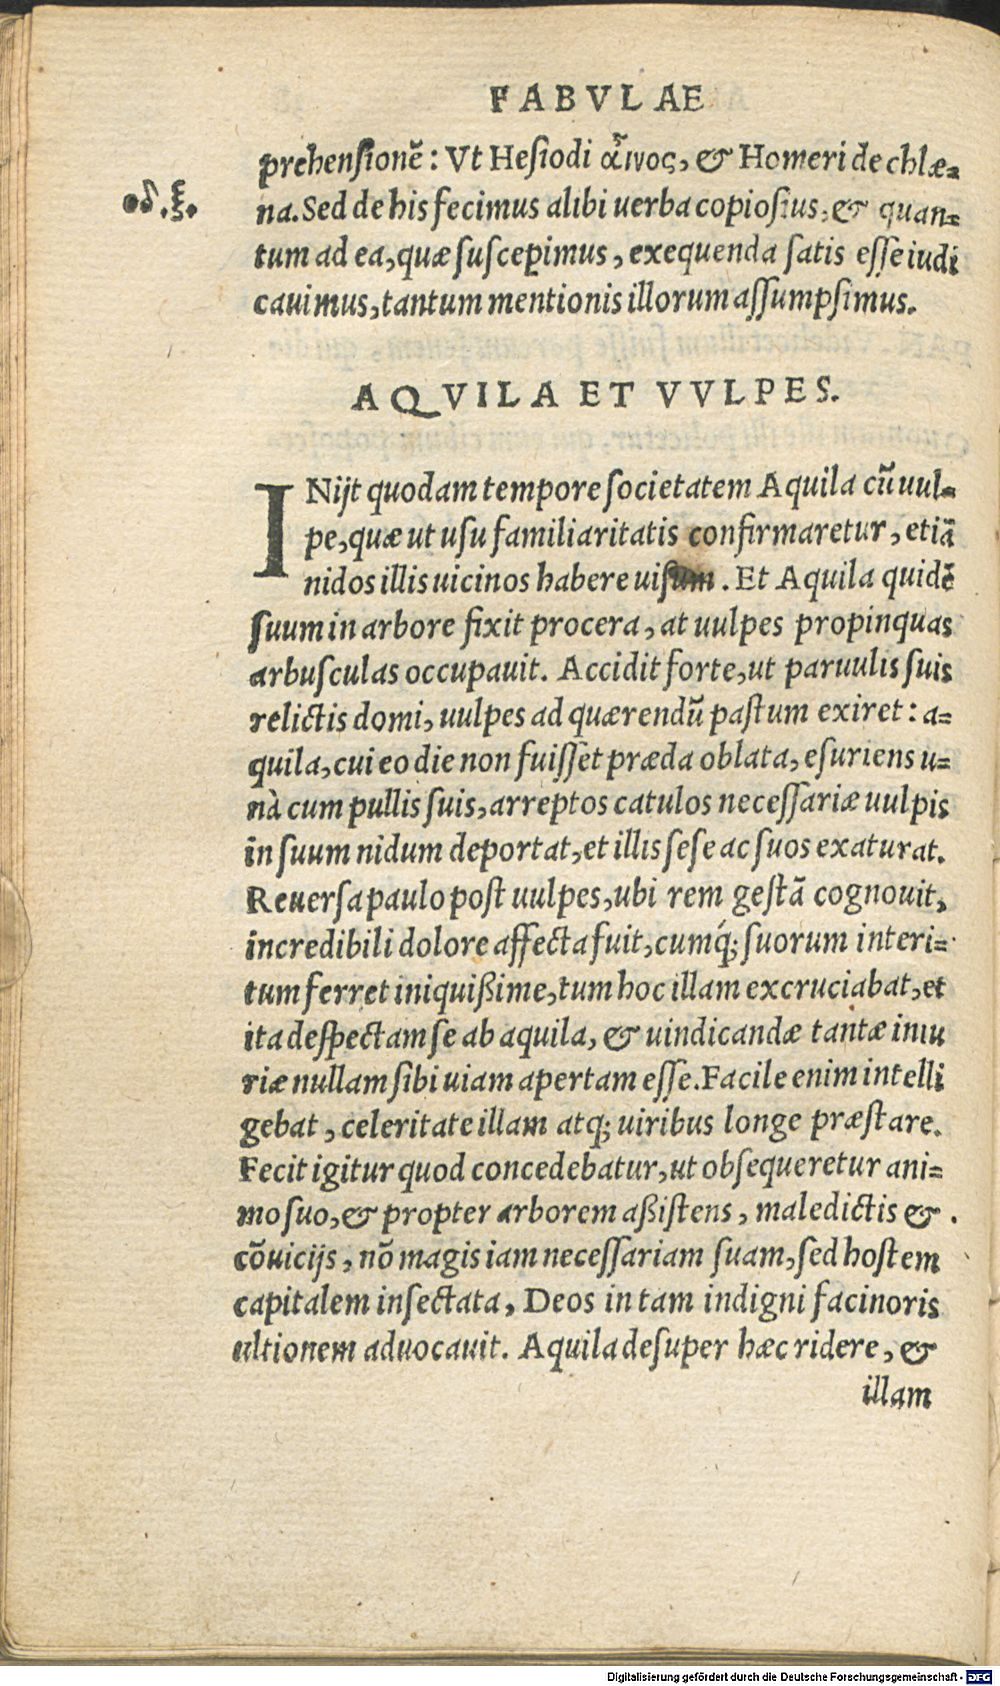 FABVLAE
prehensionẽ: Vt Hesiodi αἶνος, & Homeri de chlæ-
οδ.ξ.
na. Sed de his fecimus alibi uerba copiosius, & quan-
tum ad ea, quæ suscepimus, exequenda satis esse iudi
cauimus, tantum mentionis illorum assumpsimus.
AQVILA ET VVLPES.
INijt quodam tempore societatem Aquila cũ uul-
pe, quæ ut usu familiaritatis confirmaretur, etiã
nidos illis uicinos habere uisum. Et Aquila quidẽ
suum in arbore fixit procera, at uulpes propinquas
arbusculas occupauit. Accidit forte, ut paruulis suis
relictis domi, uulpes ad quærendũ pastum exiret: a-
quila, cui eo die non fuisset præda oblata, esuriens u-
nà cum pullis suis, arreptos catulos necessariæ uulpis
in suum nidum deportat, et illis sese ac suos exaturat.
Reuersa paulo post uulpes, ubi rem gestã cognouit,
incredibili dolore affecta fuit, cumq́; suorum interi-
tum ferret iniquißime, tum hoc illam excruciabat, et
ita despectam se ab aquila, & uindicandæ tantæ iniu
riæ nullam sibi uiam apertam esse. Facile enim intelli
gebat, celeritate illam atq; uiribus longe præstare.
Fecit igitur quod concedebatur, ut obsequeretur ani-
mo suo, & propter arborem aßistens, maledictis &
cõuicijs, nõ magis iam necessariam suam, sed hostem
capitalem insectata, Deos in tam indigni facinoris
ultionem aduocauit. Aquila desuper hæc ridere, &
illam
Digitalisierung gefördert durch die Deutsche Forschungsgemeinschaft - DFG